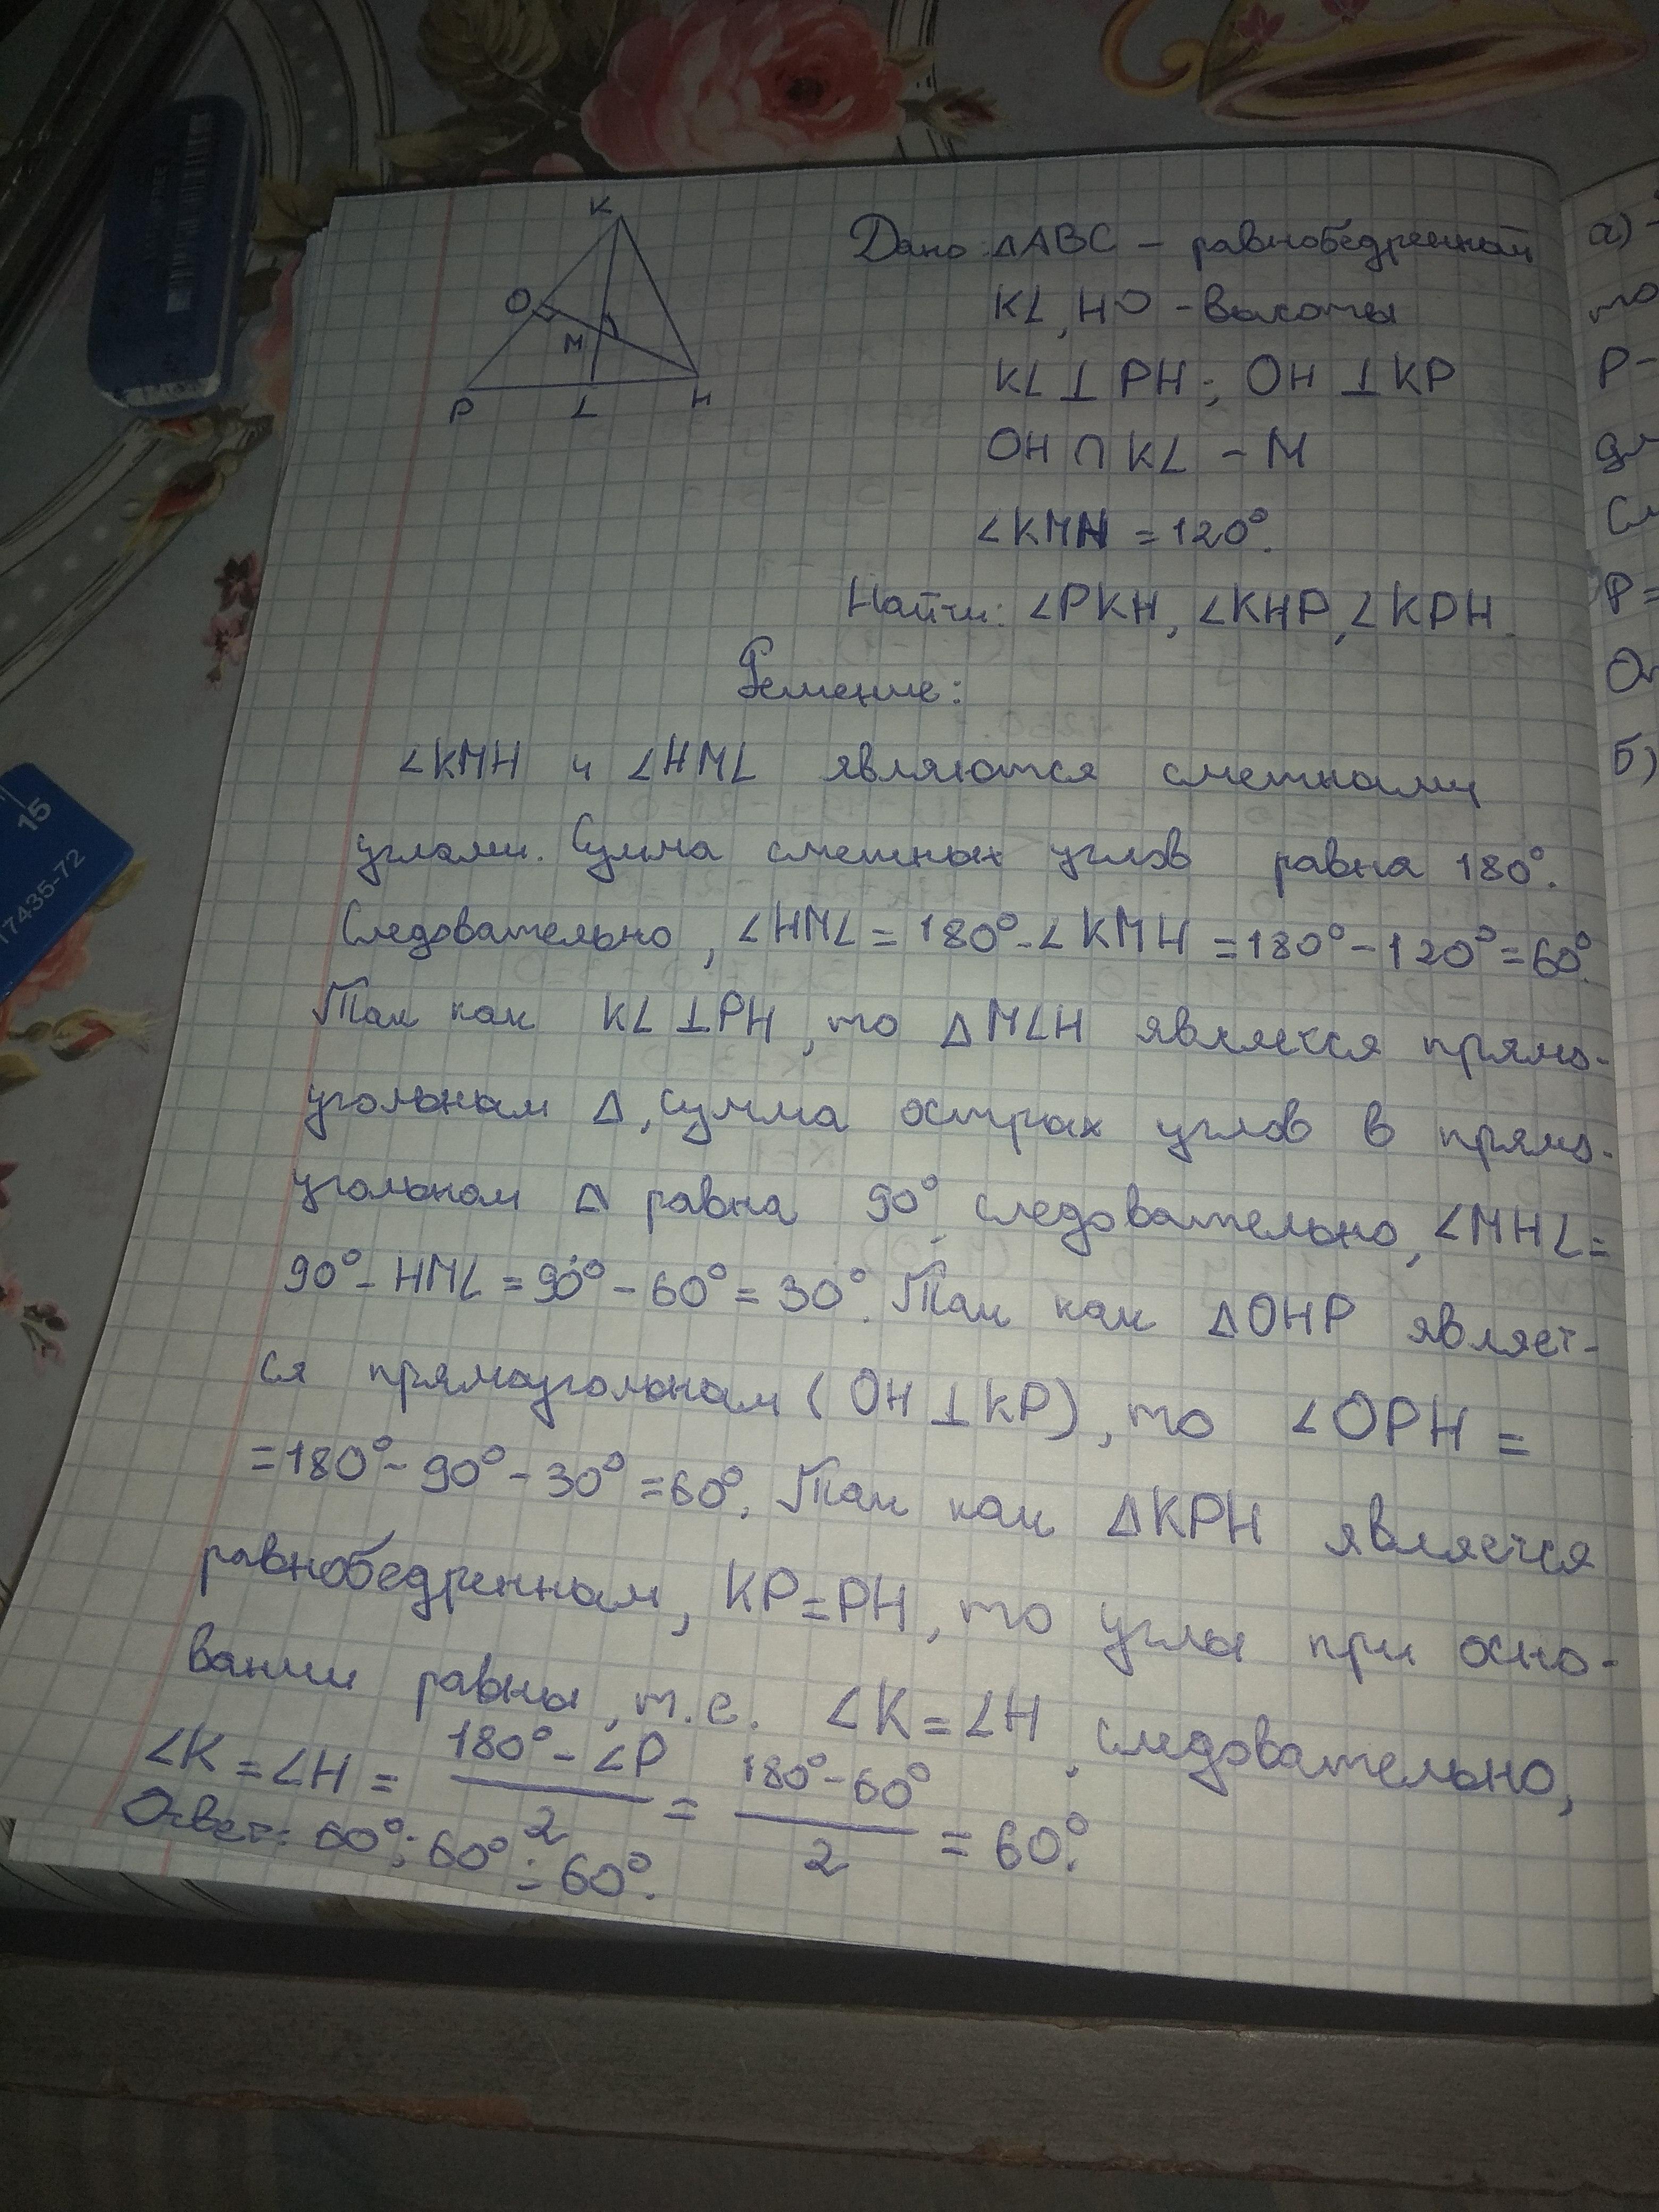 K
O
M
P L H
Дано: △ABC – равнобедренный
KL, HO - высоты
KL ⊥ PH; OH ⊥ KP
OH ∩ KL – M
∠KMH = 120°.
Найти: ∠PKH, ∠KHP, ∠KPH.
Решение:
∠KMH и ∠HML являются смежными
углами. Сумма смежных углов равна 180°.
Следовательно, ∠HML = 180° - ∠KMH = 180° - 120° = 60°.
Так как KL ⊥ PH, то △MLH является прямо-
угольным △, сумма острых углов в прямо-
угольном △ равна 90°, следовательно, ∠MHL =
90° - HML = 90° - 60° = 30°. Так как △OHP являет-
ся прямоугольным (OH ⊥ KP), то ∠OPH =
= 180° - 90° - 30° = 60°. Так как △KPH является
равнобедренным, KP = PH, то углы при осно-
вании равны, т.е. ∠K = ∠H, следовательно,
∠K = ∠H = (180° - ∠P)/2 = (180° - 60°)/2 = 60°.
Ответ: 60°; 60°; 60°.
а)
то
P-
P=
б)
15
17435-72